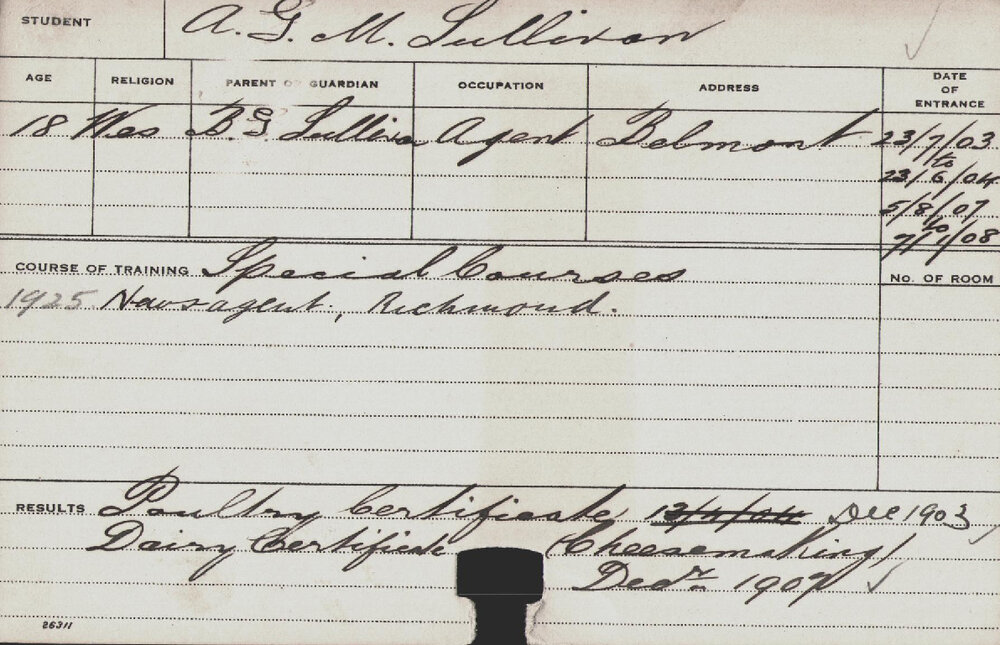 STUDENT A. G. M. Sullivan
AGE RELIGION PARENT OR GUARDIAN OCCUPATION ADDRESS DATE OF ENTRANCE
18 Wes B. G. Sullivan Agent Belmont 23/7/03
to
23/6/04
5/8/07
to
7/1/08
COURSE OF TRAINING Special Courses
No. OF ROOM
1925 Newsagent, Richmond.
RESULTS Poultry Certificate 12/4/04 Dec 1903
Dairy Certificate (Cheesemaking)
Decr. 1907
26311